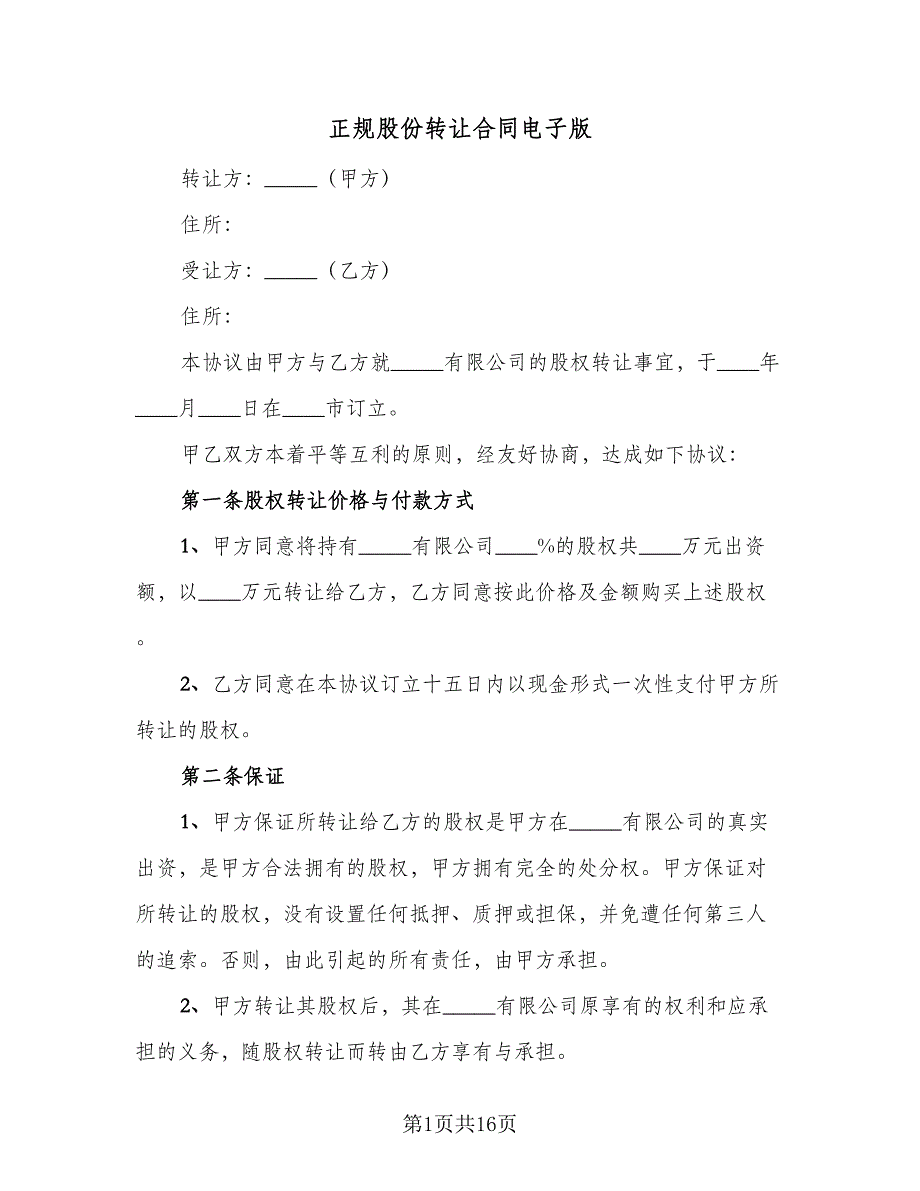 正规股份转让合同电子版
转让方：_____（甲方）
住所：
受让方：_____（乙方）
住所：
本协议由甲方与乙方就_____有限公司的股权转让事宜，于____年
____月____日在____市订立。
甲乙双方本着平等互利的原则，经友好协商，达成如下协议：
第一条股权转让价格与付款方式
1、甲方同意将持有_____有限公司____%的股权共____万元出资
额，以____万元转让给乙方，乙方同意按此价格及金额购买上述股权
。
2、乙方同意在本协议订立十五日内以现金形式一次性支付甲方所
转让的股权。
第二条保证
1、甲方保证所转让给乙方的股权是甲方在_____有限公司的真实
出资，是甲方合法拥有的股权，甲方拥有完全的处分权。甲方保证对
所转让的股权，没有设置任何抵押、质押或担保，并免遭任何第三人
的追索。否则，由此引起的所有责任，由甲方承担。
2、甲方转让其股权后，其在_____有限公司原享有的权利和应承
担的义务，随股权转让而转由乙方享有与承担。
第1页共16页